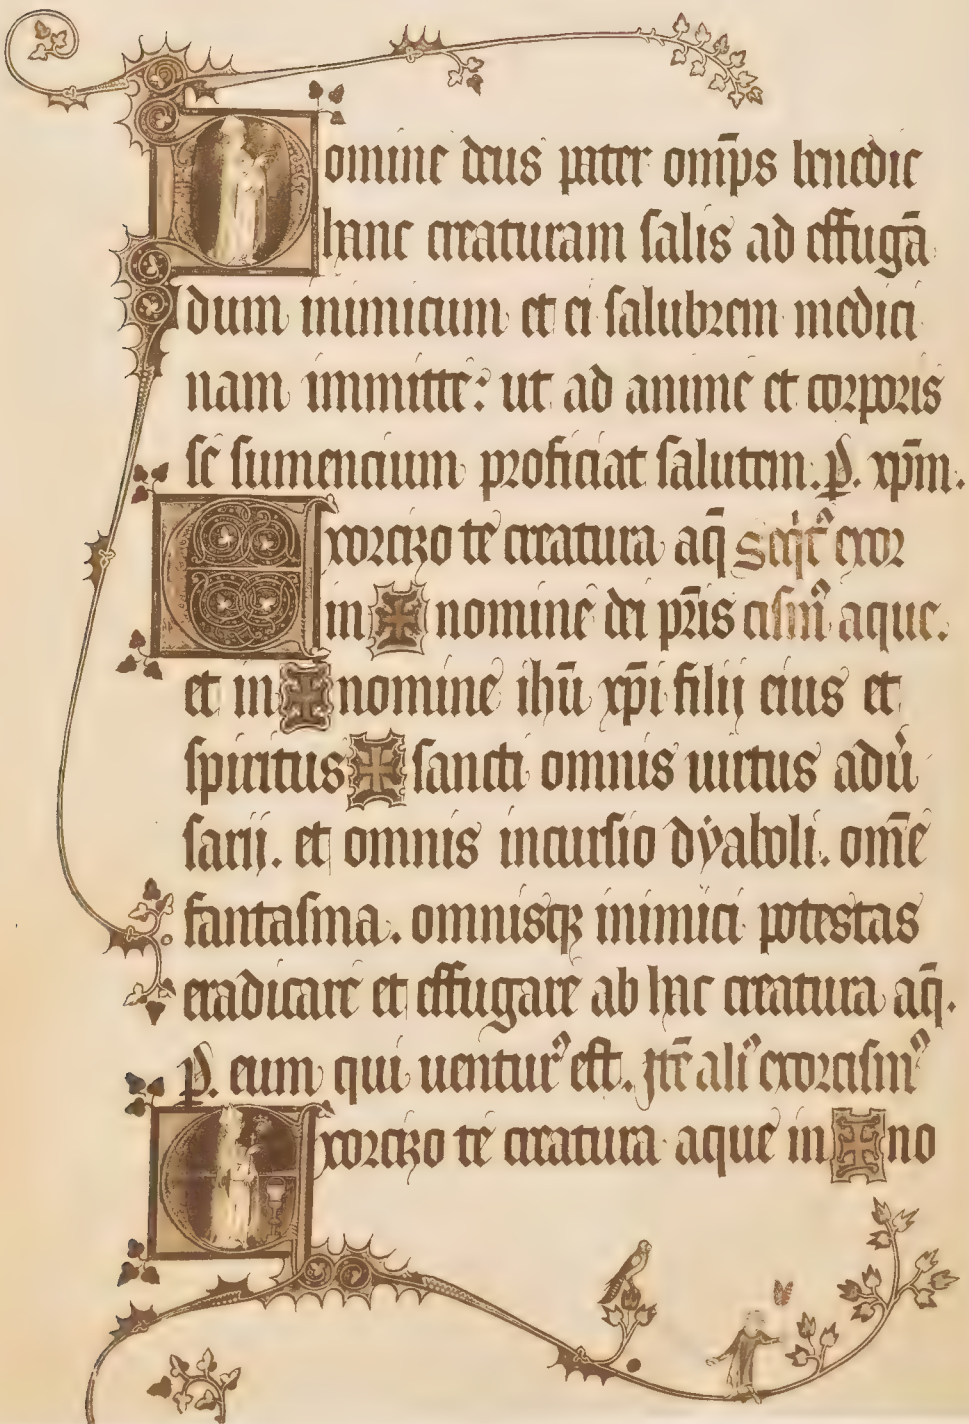 Domine deus pater om̄ps benedic
hanc creaturam salis ad effugā
dum inimicum et ei salubrem medici
nam immitte: ut ad anime et corporis
se sumencium proficiat salutem. P. xp̄m.
Exorcizo te creatura aq̄ Seqit᷑ exor
in ✠ nomine dei pr̄is cismꝰ aque.
et in ✠ nomine ihū xp̄i filij eius et
spiritus ✠ sancti omnis uirtus adu᷑
sarij. et omnis incursio dyaboli. om̄e
fantasma. omnisqꝫ inimici potestas
eradicare et effugare ab hac creatura aq̄.
P. eum qui uenturꝰ est. Itē aliꝰ exorcismꝰ
Exorcizo te creatura aque in ✠ no